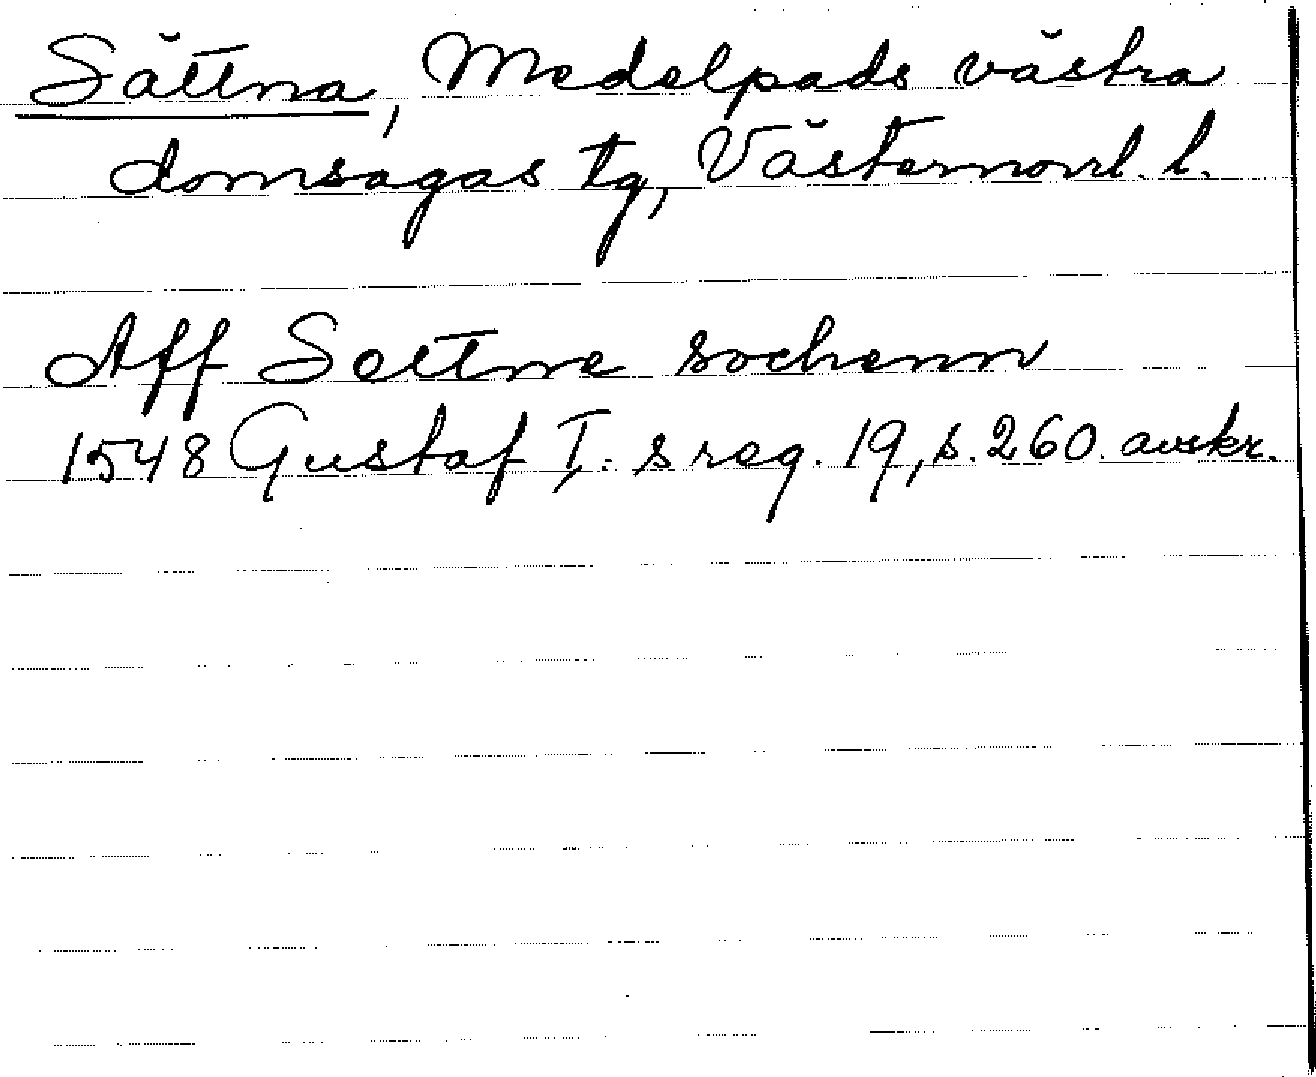 Sättna, Medelpads västra
domsagas tg, Västernorrl. l.
Aff Settne sochenn
1548 Gustaf I:s reg. 19, s. 260. avskr.